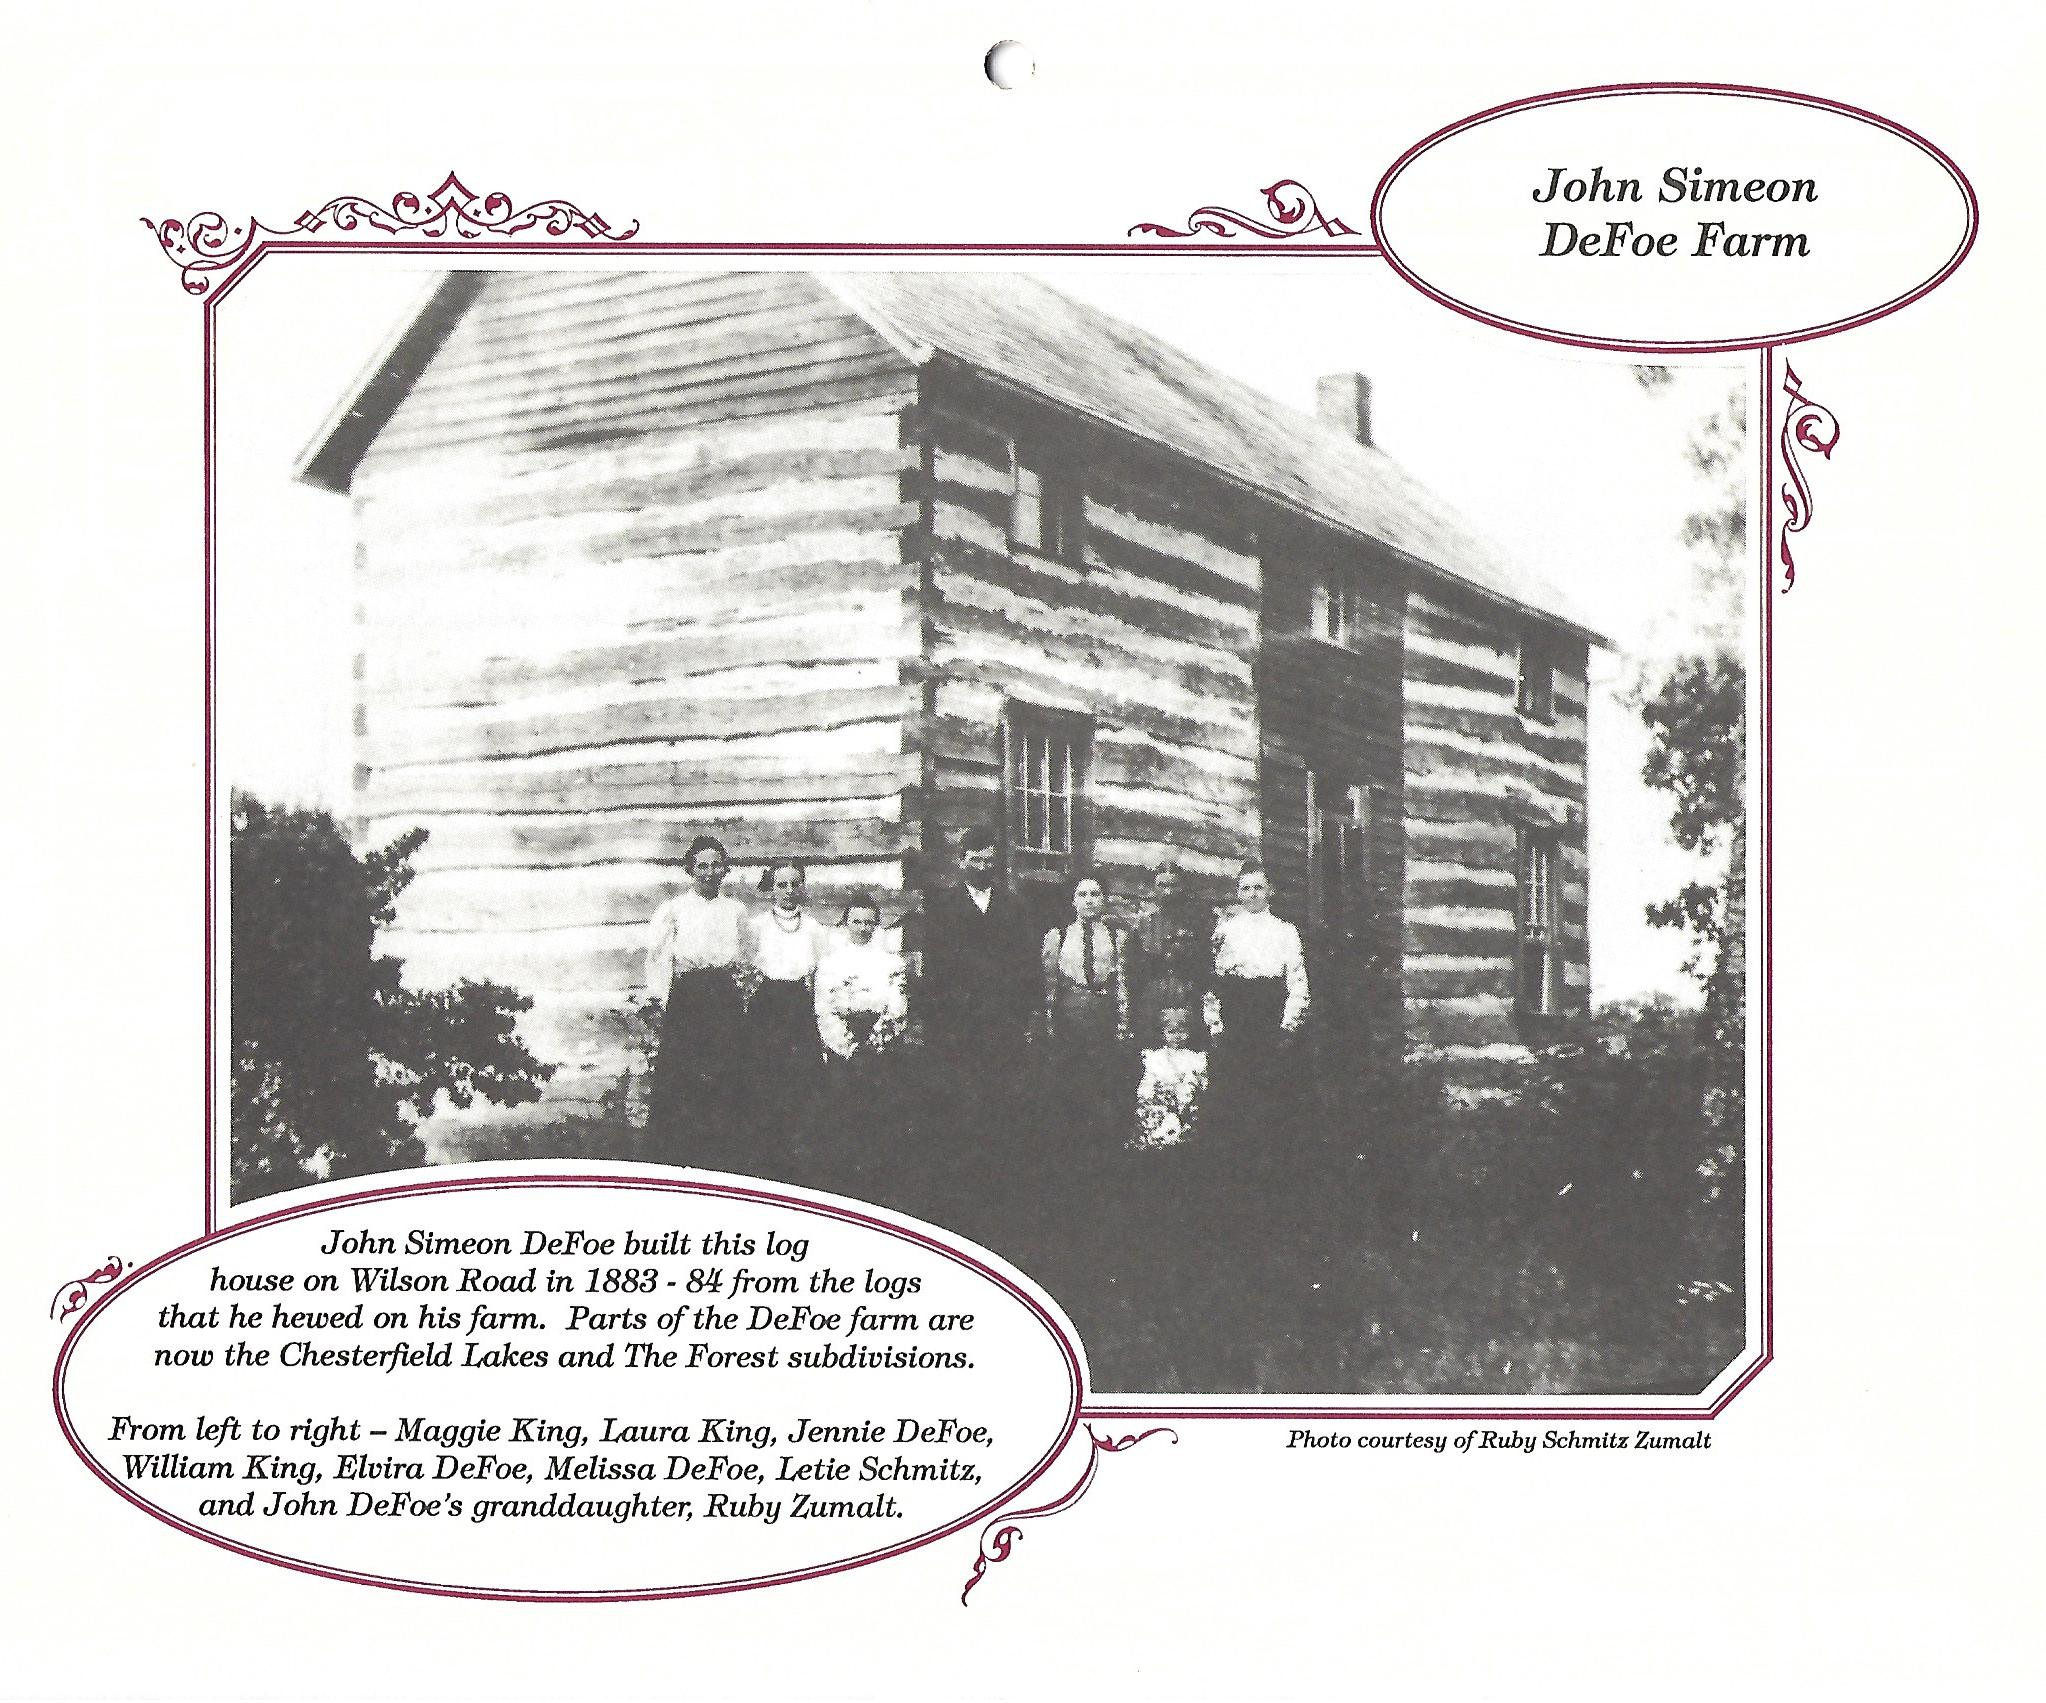 John Simeon
DeFoe Farm
John Simeon DeFoe built this log
house on Wilson Road in 1883 - 84 from the logs
that he hewed on his farm.  Parts of the DeFoe farm are
now the Chesterfield Lakes and The Forest subdivisions.
From left to right – Maggie King, Laura King, Jennie DeFoe,
William King, Elvira DeFoe, Melissa DeFoe, Letie Schmitz,
and John DeFoe's granddaughter, Ruby Zumalt.
Photo courtesy of Ruby Schmitz Zumalt